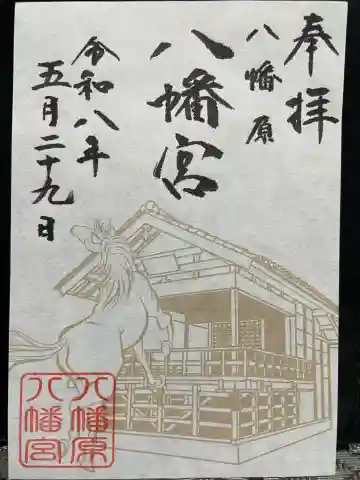 奉拝
八幡原
八幡宮
令和八年
五月二十九日
八幡原
八幡宮